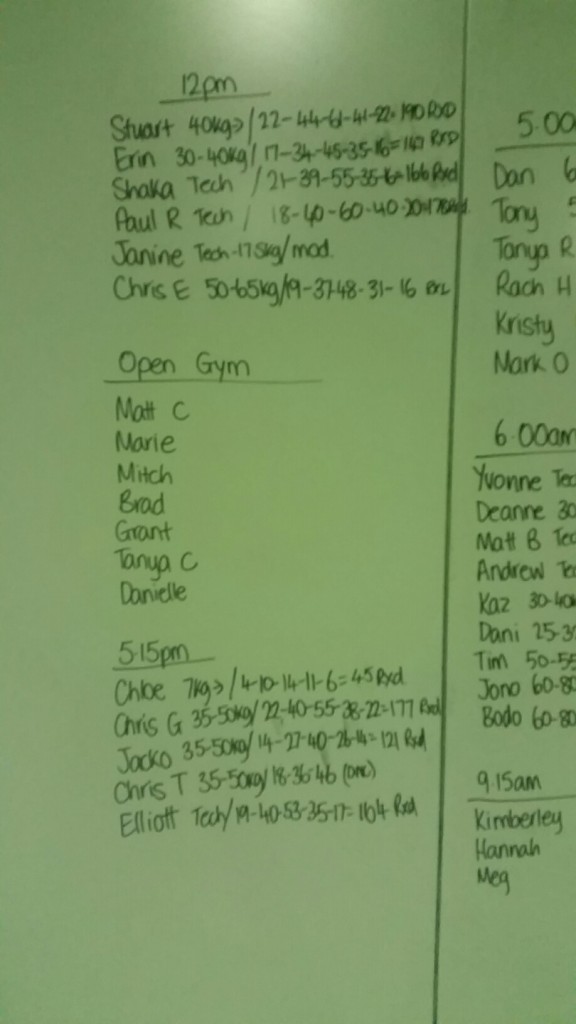 12pm
Stuart 40kg→/22-44-61-41-22=190 RXD
Erin 30-40kg/17-34-45-35-16=147 RXD
Shaka Tech /21-39-55-35-16=166 Rxd
Paul R Tech / 18-40-60-40-20=178 Rxd.
Janine Tech-17.5kg/mod.
Chris E 50-65kg/19-37-48-31-16
Open Gym
Matt C
Marie
Mitch
Brad
Grant
Tanya C
Danielle
5.15pm
Chloe 7kg→/4-10-14-11-6=45 Rxd
Chris G 35-50kg/22-40-55-38-22=177 Rxd
Jacko 35-50kg/14-27-40-26-14=121 Rxd
Chris T 35-50kg/18-36-46
Elliott Tech/19-40-53-35-17=164 Rxd
5.00
Dan 6
Tony 5
Tanya R
Rach H
Kristy
Mark O
6.00am
Yvonne Tec
Deanne 30
Matt B Tec
Andrew Te
Kaz 30-40k
Dani 25-30
Tim 50-55
Jono 60-80
Bodo 60-80
9.15am
Kimberley
Hannah
Meg